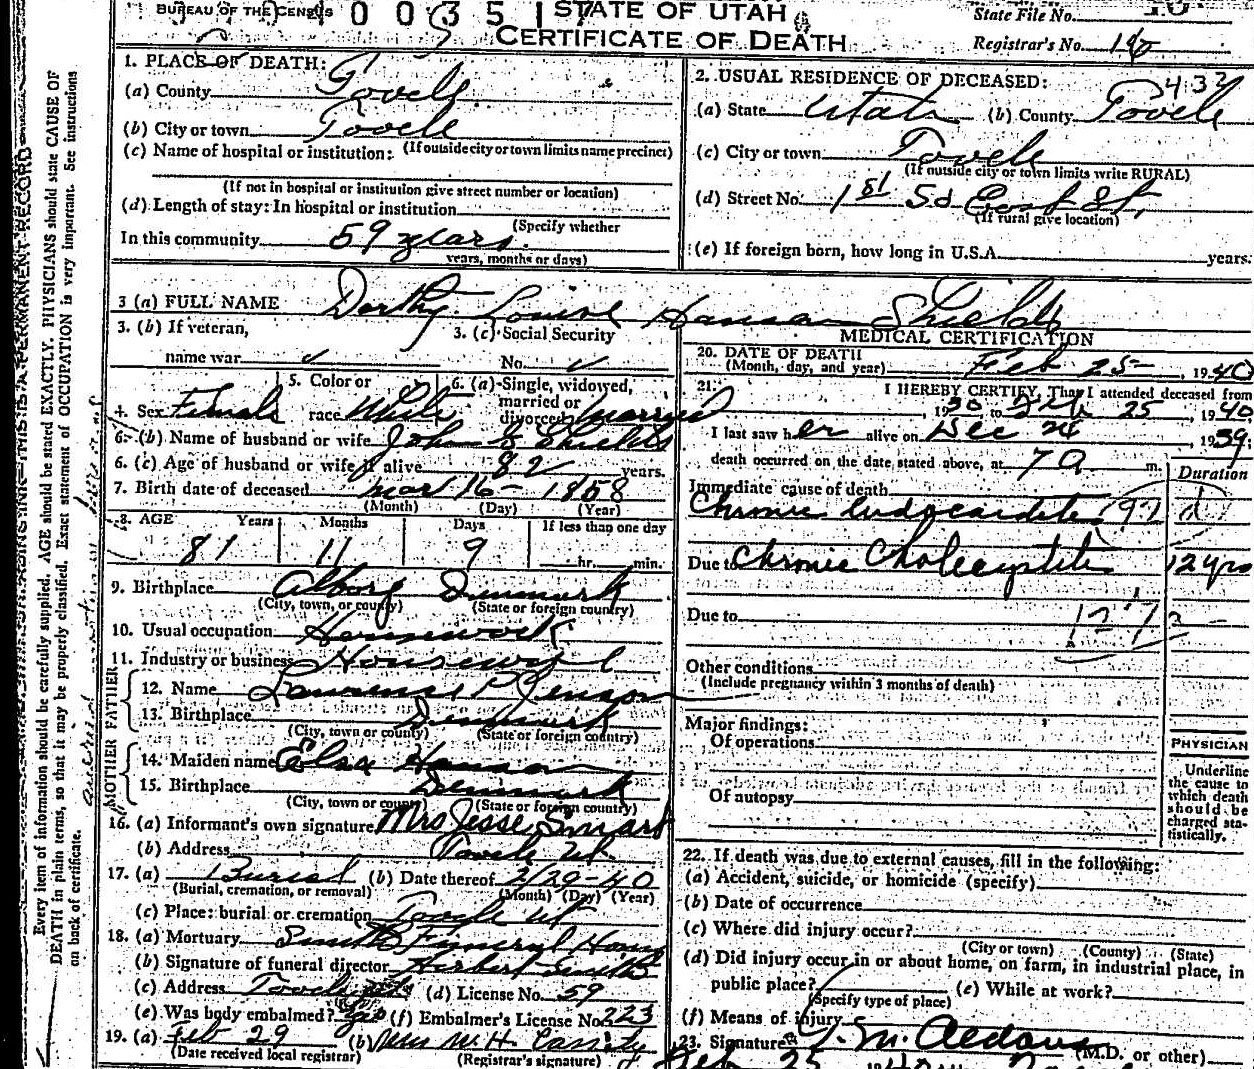 BUREAU OF THE CENSUS
STATE OF UTAH
CERTIFICATE OF DEATH
State File No.
Registrar's No.
1. PLACE OF DEATH:
(a) County Tooele
(b) City or town Tooele
(c) Name of hospital or institution: (If outside city or town limits name precinct)
(If not in hospital or institution give street number or location)
(d) Length of stay: In hospital or institution
(Specify whether
In this community 59 years.
years, months or days)
2. USUAL RESIDENCE OF DECEASED:
(a) State Utah (b) County Tooele
(c) City or town Tooele
(If outside city or town limits write RURAL)
(d) Street No. 1st So East St.
(If rural give location)
(e) If foreign born, how long in U.S.A. years.
3 (a) FULL NAME Dorthy Louise Hanson Shields
3. (b) If veteran,
name war
3. (c) Social Security
No.
4. Sex Female
5. Color or
race White
6. (a) Single, widowed,
married or
divorced Married
6. (b) Name of husband or wife John G Shields
6. (c) Age of husband or wife if alive 82 years.
7. Birth date of deceased Mar 16 - 1858
(Month) (Day) (Year)
8. AGE Years Months Days If less than one day
81 11 9 hr. min.
9. Birthplace Alborg Denmark
(City, town, or county) (State or foreign country)
10. Usual occupation Housework
11. Industry or business Housewife
FATHER
12. Name Lawrence P Jenson
13. Birthplace Denmark
(City, town or county) (State or foreign country)
MOTHER
14. Maiden name Elsa Hanson
15. Birthplace Denmark
(City, town or county) (State or foreign country)
16. (a) Informant's own signature Mrs Jesse Smart
(b) Address Tooele Ut.
17. (a) Burial (b) Date thereof 2/29-40
(Burial, cremation, or removal) (Month) (Day) (Year)
(c) Place: burial or cremation Tooele Ut
18. (a) Mortuary Smiths Funeral Home
(b) Signature of funeral director Herbert Smith
(c) Address Tooele (d) License No. 59
(e) Was body embalmed? Yes (f) Embalmer's License No. 223
19. (a) Feb 29 (b) Mrs W. H. Cassity
(Date received local registrar) (Registrar's signature)
MEDICAL CERTIFICATION
20. DATE OF DEATH
(Month, day, and year) Feb 25 - , 1940
21. I HEREBY CERTIFY, That I attended deceased from
, 1930 to Feb 25 , 1940,
I last saw her alive on Dec 24 , 1939,
death occurred on the date stated above, at 7 a m.
Duration
Immediate cause of death
Chronic Endocarditis
Due to Chronic Cholecystitis 12 yrs
Due to
Other conditions
(Include pregnancy within 3 months of death)
Major findings:
Of operations
Of autopsy
PHYSICIAN
Underline
the cause to
which death
should be
charged sta-
tistically.
22. If death was due to external causes, fill in the following:
(a) Accident, suicide, or homicide (specify)
(b) Date of occurrence
(c) Where did injury occur?
(City or town) (County) (State)
(d) Did injury occur in or about home, on farm, in industrial place, in
public place? (e) While at work?
(Specify type of place)
(f) Means of injury
23. Signature (M.D. or other)
Every item of information should be carefully supplied. AGE should be stated EXACTLY. PHYSICIANS should state CAUSE OF
DEATH in plain terms, so that it may be properly classified. Exact statement of OCCUPATION is very important. See instructions
on back of certificate.